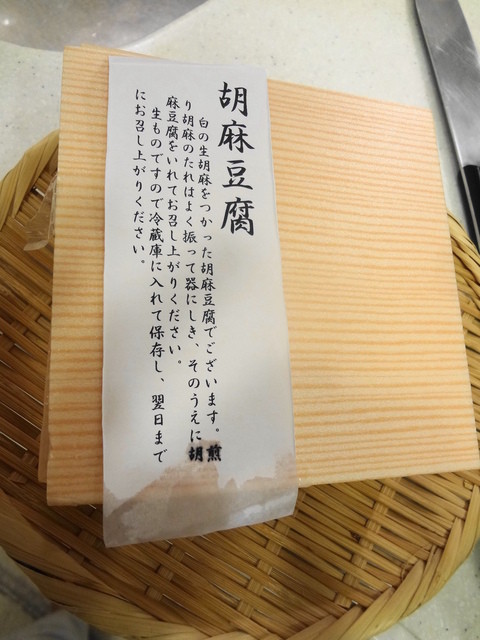 胡麻豆腐
白の生胡麻をつかった胡麻豆腐でございます。煎
り胡麻のたれはよく振って器にしき、そのうえに胡
麻豆腐をいれてお召し上がりください。
生ものですので冷蔵庫に入れて保存し、翌日まで
にお召し上がりください。